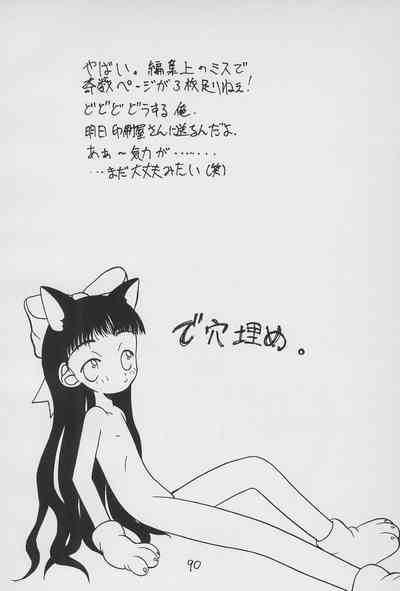 やばい。編集上のミスで
奇数ページが3枚足りねぇ!
どどどどうする俺.
明日印刷屋さんに送るんだよ.
あぁ～気力が…‥‥‥
…まだ大丈夫みたい(笑)
で穴埋め。
90